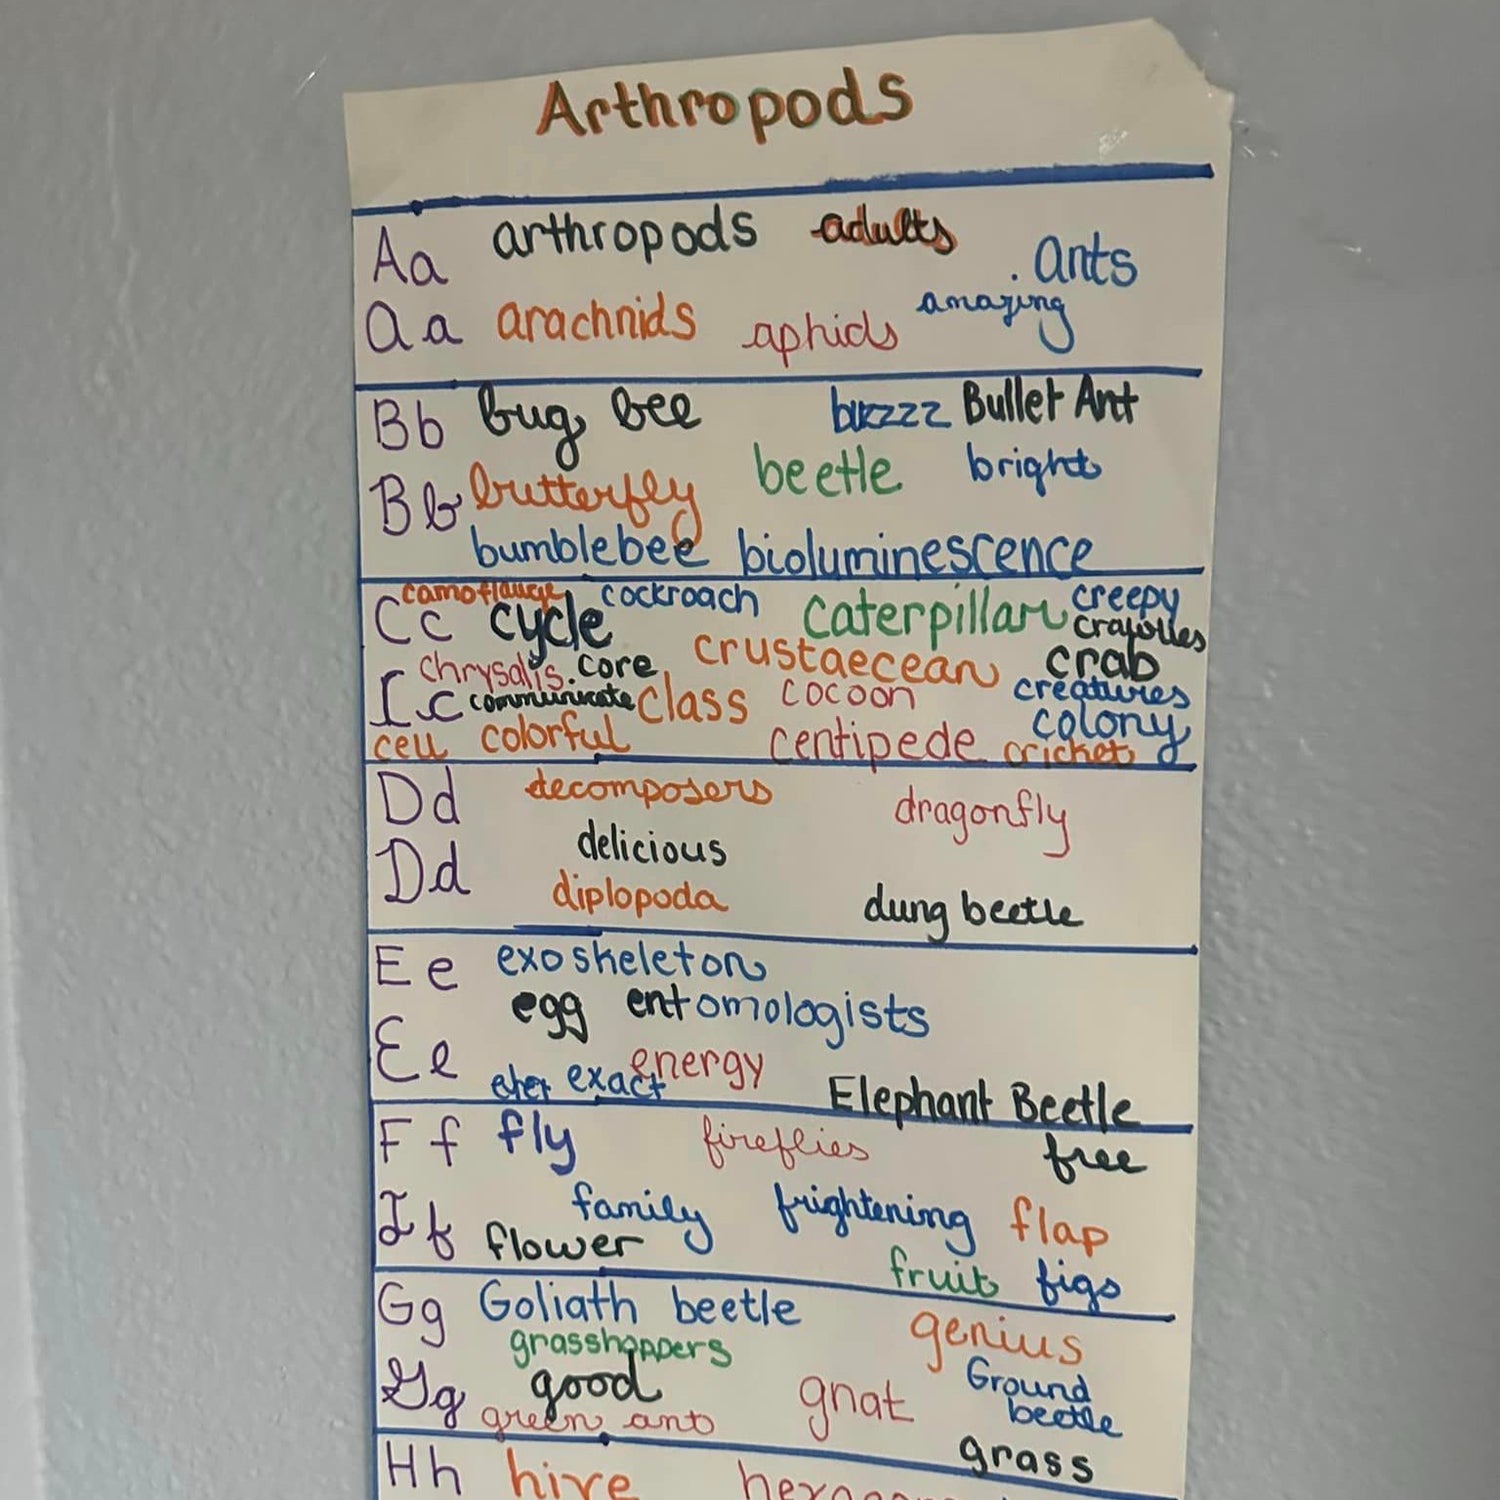 Arthropods
Aa arthropods adults . ants
Aa arachnids aphids amazing
Bb bug bee buzzzz Bullet Ant
beetle bright
Bb butterfly
bumblebee bioluminescence
camoflauge cockroach caterpillar creepy
Cc cycle crawlies
chrysalis. core crustaecean crab
Cc communicate class cocoon creatures
colony
cell colorful centipede cricket
Dd decomposers dragonfly
delicious
Dd diplopoda dung beetle
Ee exoskeleton
egg entomologists
Ee energy
exact Elephant Beetle
Ff fly fireflies free
Ff family frightening flap
flower fruit figs
Gg Goliath beetle genius
grasshoppers
Gg good gnat Ground
green ant beetle
grass
Hh hive